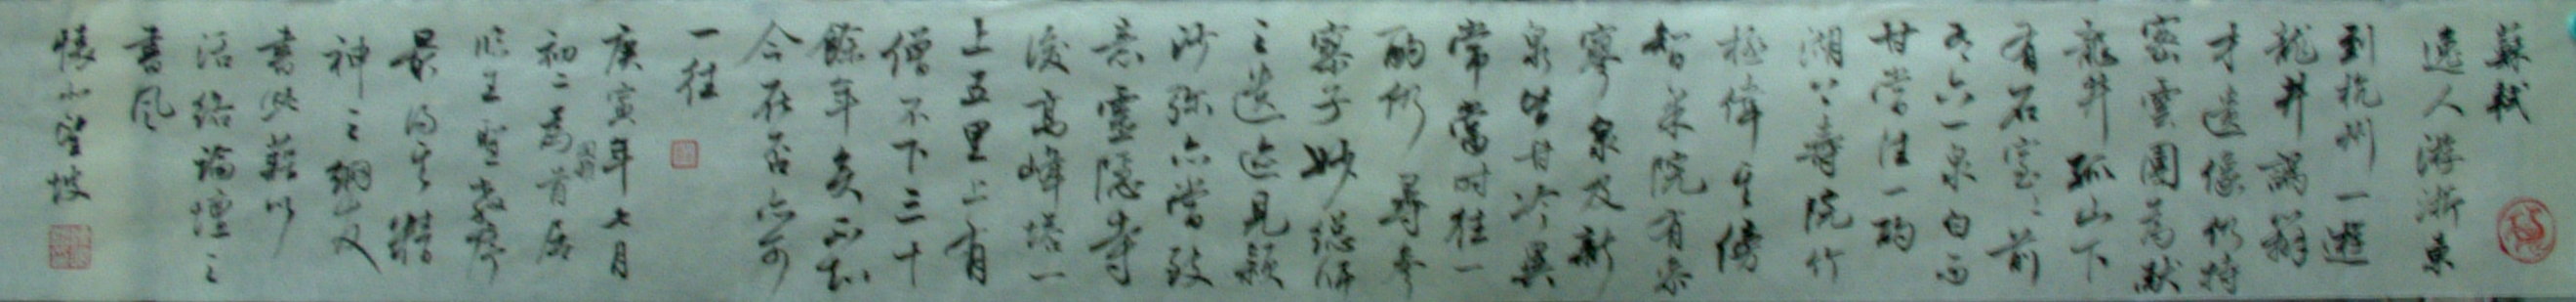 蘇軾
遠人游浙東
到杭州一遊
龍井謁辯
才遺像仍持
密雲團為獻
龍井孤山下
有石室〻前
有六一泉白而
甘當往一酌
湖上壽院竹
極偉其傍
智果院有參
寥泉及新
泉皆甘冷異
常當時往一
酌仍尋參
寥子妙總師
之遺迹見穎
沙弥亦當致
意靈隱寺
後高峰塔一
上五里上有
僧不下三十
餘年矣不知
今在否亦可
一往
庚寅年七月
初二為首屆
臨王聖教序
最得其
神之網友
書此藉以
活絡論壇之
書風